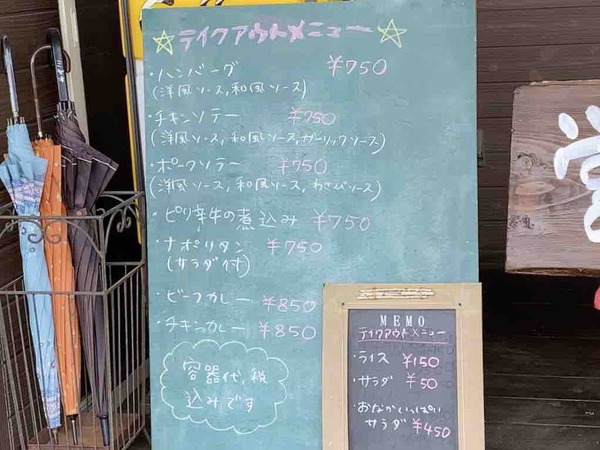 ☆テイクアウトメニュー☆
・ハンバーグ ¥750
(洋風ソース,和風ソース)
・チキンソテー ¥750
(洋風ソース,和風ソース,ガーリックソース)
・ポークソテー ¥750
(洋風ソース,和風ソース,わさびソース)
・ピリ辛牛の煮込み ¥750
・ナポリタン ¥750
(サラダ付)
・ビーフカレー ¥850
・チキンカレー ¥850
容器代,税
込みです
MEMO
テイクアウトメニュー
・ライス ¥150
・サラダ ¥50
・おなかいっぱい
サラダ ¥450